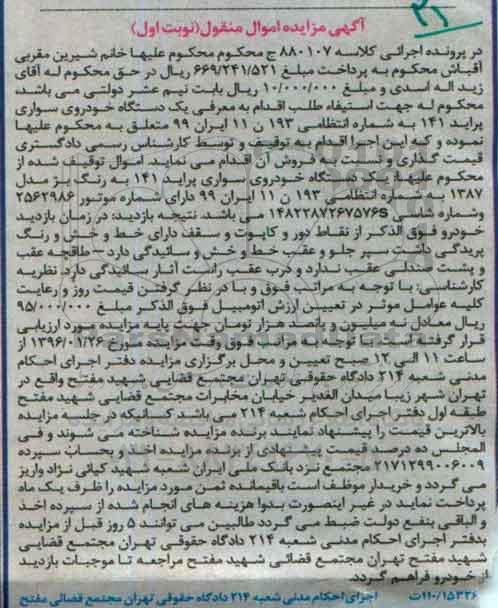 ۲۱
آگهی مزایده اموال منقول(نوبت اول)
در پرونده اجرائی کلاسه ۸۸۰۱۰۷ ج محکوم محکوم علیها خانم شیرین مقربی
آقباش محکوم به پرداخت مبلغ ۶۶۹/۲۴۱/۵۲۱ ریال در حق محکوم له آقای
زید اله اسدی و مبلغ ۱۰/۰۰۰/۰۰۰ ریال بابت نیم عشر دولتی می باشد،
محکوم له جهت استیفاء طلب اقدام به معرفی یک دستگاه خودروی سواری
پراید ۱۴۱ به شماره انتظامی ۱۹۳ ن ۱۱ ایران ۹۹ متعلق به محکوم علیها
نموده و که این اجرا اقدام به توقیف و توسط کارشناس رسمی دادگستری
قیمت گذاری و نسبت به فروش آن اقدام می نماید. اموال توقیف شده از
محکوم علیها: یک دستگاه خودروی سواری پراید ۱۴۱ به رنگ بژ مدل
۱۳۸۷ به شماره انتظامی ۱۹۳ ن ۱۱ ایران ۹۹ دارای شماره موتور ۲۵۶۲۹۸۶
وشماره شاسی ۱۴۸۲۲۸۷۲۶۷۵۷۶S می باشد. نتیجه بازدید: در زمان بازدید
خودرو فوق الذکر از نقاط دور و کاپوت و سقف دارای خط و خش و رنگ
پریدگی داشت سپر جلو و عقب خط و خش و سائیدگی دارد – طاقچه عقب
و پشت صندلی عقب ندارد و درب عقب راست آثار سائیدگی دارد. نظریه
کارشناسی: با توجه به مراتب فوق و با در نظر گرفتن قیمت روز و رعایت
کلیه عوامل موثر در تعیین ارزش اتومبیل فوق الذکر مبلغ ۹۵/۰۰۰/۰۰۰
ریال معادل نه میلیون و پانصد هزار تومان جهت پایه مزایده مورد ارزیابی
قرار گرفته است. با توجه به مراتب فوق وقت مزایده مورخ ۱۳۹۶/۰۱/۲۶ از
ساعت ۱۱ الی ۱۲ صبح تعیین و محل برگزاری مزایده دفتر اجرای احکام
مدنی شعبه ۲۱۴ دادگاه حقوقی تهران مجتمع قضایی شهید مفتح واقع در
تهران شهر زیبا میدان الغدیر خیابان مخابرات مجتمع قضایی شهید مفتح
طبقه اول دفتر اجرای احکام شعبه ۲۱۴ می باشد کسانیکه در جلسه مزایده
بالاترین قیمت را پیشنهاد نمایند برنده مزایده شناخته می شوند و فی
المجلس ده درصد قیمت پیشنهادی از برنده مزایده اخذ و بحساب سپرده
۲۱۷۱۲۹۹۰۰۶۰۰۹ مجتمع نزد بانک ملی ایران شعبه شهید کیانی نژاد واریز
می گردد و خریدار موظف است باقیمانده ثمن مورد مزایده را ظرف یک ماه
پرداخت نماید در غیر اینصورت بدوا هزینه های انجام شده از سپرده اخذ
و الباقی بنفع دولت ضبط می گردد طالبین می توانند ۵ روز قبل از مزایده
بدفتر اجرای احکام مدنی شعبه ۲۱۴ دادگاه حقوقی تهران مجتمع قضایی
شهید مفتح تهران مجتمع قضائی شهید مفتح مراجعه تا موجبات بازدید
از خودرو فراهم گردد.
۱۱۰/۱۵۳۲۶ت اجرای احکام مدنی شعبه ۲۱۴ دادگاه حقوقی تهران مجتمع قضائی مفتح